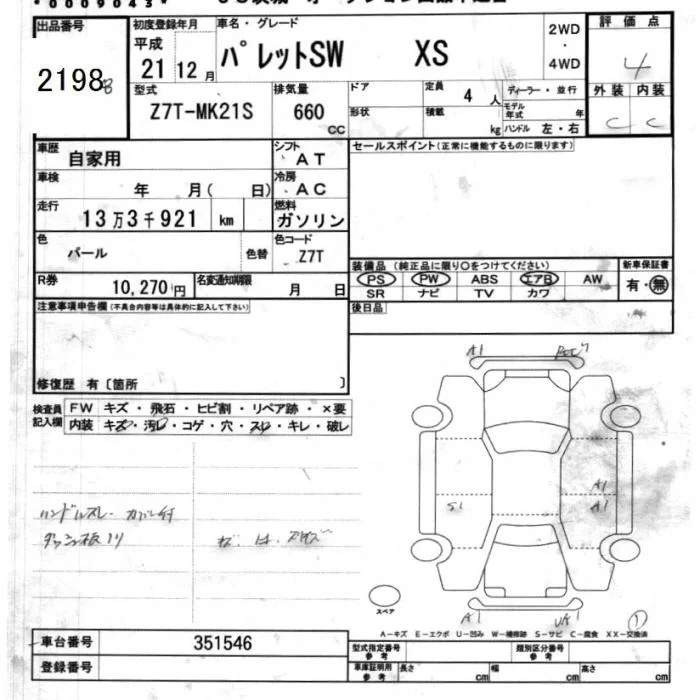 出品番号
2198
初度登録年月
平成
21 12月
車名・グレード
パレットSW XS
2WD
・
4WD
評価点
4
型式
Z7T-MK21S
排気量
660
CC
ドア
形状
定員
4 人
積載
kg
ディーラー・並行
モデル年式 年
ハンドル 左・右
外装 内装
C C
車歴
自家用
シフト
AT
セールスポイント(正常に機能するものに限ります)
車検
年 月( 日)
冷房
AC
走行
13万3千921 km
燃料
ガソリン
色
パール
色替
色コード
Z7T
装備品(純正品に限り○をつけてください)
新車保証書
PS PW ABS エアB AW
有・無
SR ナビ TV カワ
R券
10,270円
名変通知期限
月 日
後日品
注意事項申告欄(不具合内容等は具体的に記入して下さい)
修復歴 有〔箇所 〕
検査員記入欄
FW キズ・飛石・ヒビ割・リペア跡・×要
内装 キズ・汚れ・コゲ・穴・スレ・キレ・破レ
ハンドルスレ カバー付
A1
A1
A1
S1
A1
スペア
1
A-キズ E-エクボ U-凹み W-補修跡 S-サビ C-腐食 XX-交換済
車台番号
351546
登録番号
型式指定番号
参考
類別区分番号
参考
車庫証明用
参考
長さ cm
幅 cm
高さ cm